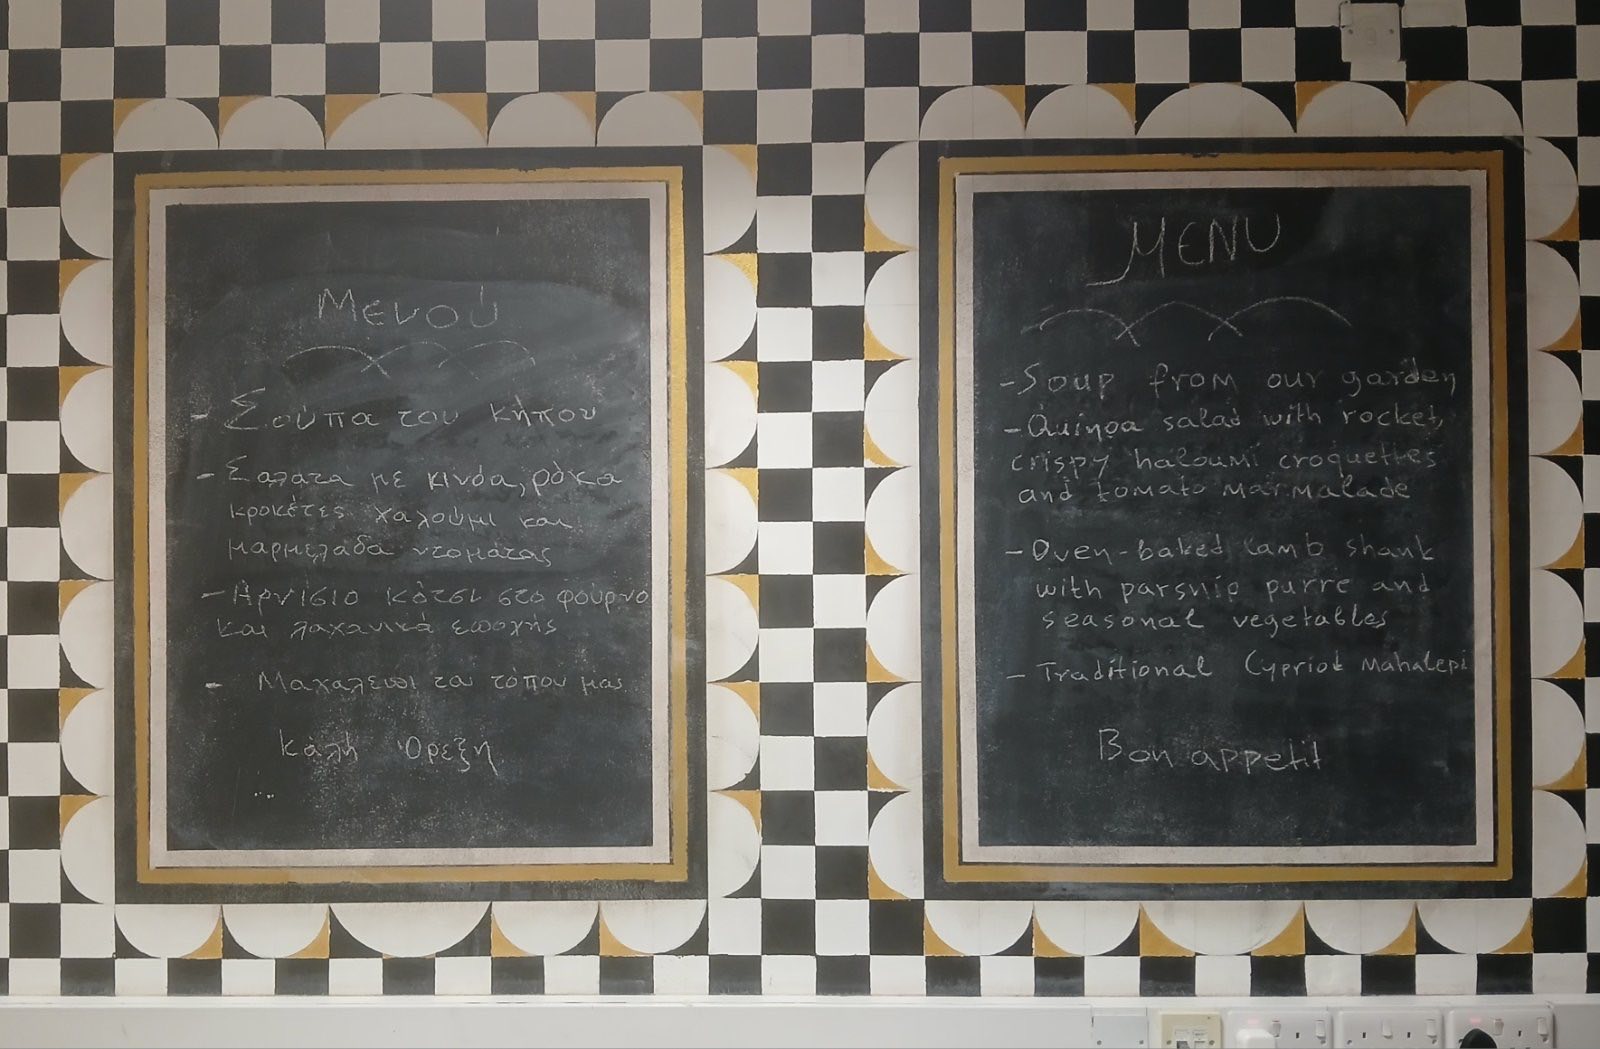 Μενού
- Σούπα του κήπου
- Σαλάτα με κινόα, ρόκα
κροκέτες χαλούμι και
μαρμελάδα ντομάτας
- Αρνίσιο κότσι στο φούρνο
και λαχανικά εποχής
- Μαχαλεπι του τόπου μας
Κάλη Όρεξη
MENU
- Soup from our garden
- Quinoa salad with rocket,
crispy haloumi croquettes
and tomato marmalade
- Oven-baked lamb shank
with parsnip purre and
seasonal vegetables
- Traditional Cypriot Mahalepi
Bon appetit